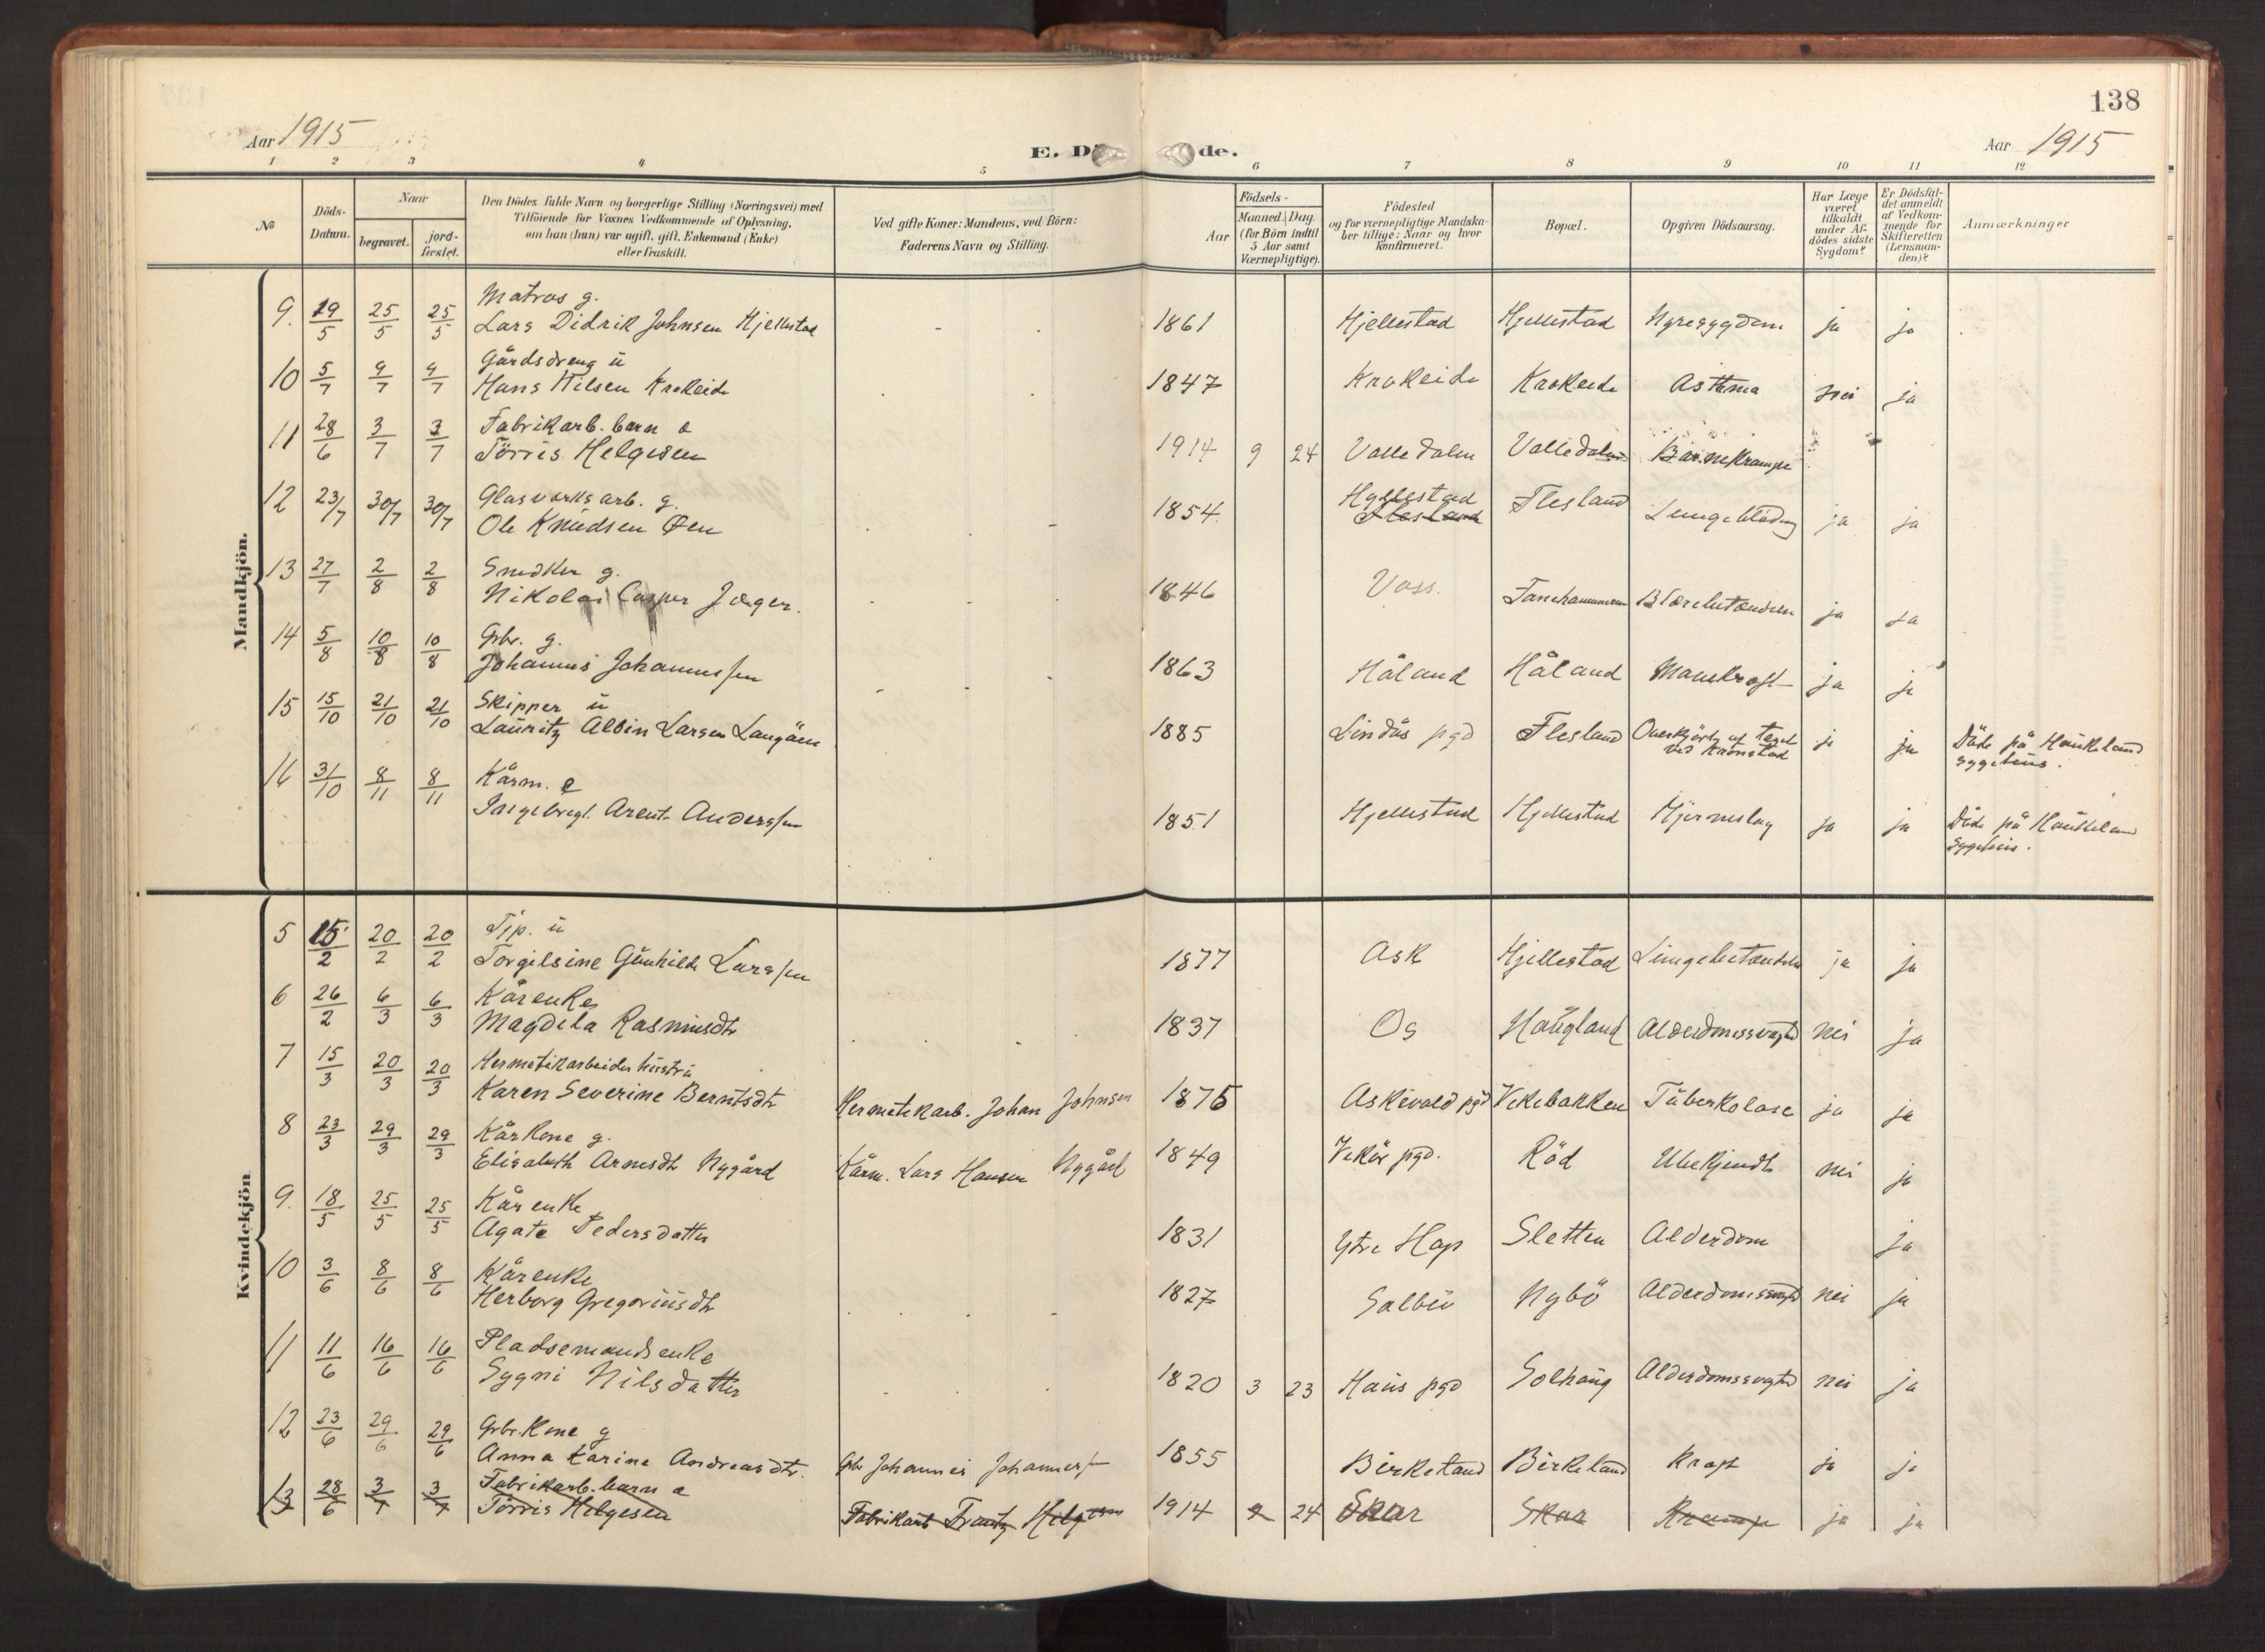 138
Aar 1915
E. Dö de.
Aar 1915
1 2 3 4 5 6 7 8 9 10 11 12
№
Döds-Datum.
Naar
begravet.
jord-fæstet.
Den Dödes fulde Navn og borgerlige Stilling (Næringsvei) med
Tilföiende for Voxnes Vedkommende af Oplysning,
om han (hun) var ugift, gift, Enkemand (Enke)
eller fraskilt.
Ved gifte Koner: Mandens, ved Börn:
Faderens Navn og Stilling.
Födsels-
Aar
Maaned. Dag.
(for Börn indtil
5 Aar samt
Værnepligtige).
Födested
og for værnepligtige Mandska-
ber tillige: Naar og hvor
konfirmeret.
Bopæl.
Opgiven Dödsaarsag.
Har Læge
været
tilkaldt
under Af-
dödes sidste
Sygdom?
Er Dödsfal-
det anmeldt
af Vedkom-
mende for
Skifteretten
(Lensman-
den)?
Anmærkninger
Mandkjön.
Matros g.
9. 19/5 25/5 25/5 Lars Didrik Johnsen Hjellestad 1861 Hjellestad Hjellestad Nyresygdom ja ja
Gårdsdreng ü
10 5/7 9/7 9/7 Hans Nilsen Krokeide 1847 Krokeide Krokeide Asthma nei ja
Fabrikarb. barn
11 28/6 3/7 3/7 Törris Helgesen 1914 9 24 Valledalen Valledalen Barnekrampe
Glasværksarb. g.
12 23/7 30/7 30/7 Ole Knüdsen Øen 1854 Hjellestad Flesland Flesland Lungeblødng ja ja
Snedker g.
13 27/7 2/8 2/8 Nikolai Casper Jæger. 1846 Voss. Fanehammeren Blærebetændelse ja ja
Gbr. g.
14 5/8 10/8 10/8 Johannes Johannessen 1863 Håland Håland Mavekræft ja ja
Skipper ü
15 15/10 21/10 21/10 Lauritz Albin Larsen Langöen 1885 Lindås pgd Flesland Overkjørt af toget ja ja Døde på Haukeland
ved Kronstad sygehüs.
Kårm. e
16 31/10 8/11 8/11 Ingebregt Arent Anderssen 1851 Hjellestad Hjellestad Hjerneslag ja ja Døde på Haukeland
sygehüs.
Kvindekjön
Tjp. ü
5 15/2 20/2 20/2 Torgilsine Günhilde Larssen 1877 Ask Hjellestad Lüngebetændelse ja ja
Kårenke
6 26/2 6/3 6/3 Magdela Rasmüsdtr 1837 Os Haügland Alderdomssvaghed nei ja
Hermetikarbeider hüstrü
7 15/3 20/3 20/3 Karen Severine Berntsdtr Hermetikarb. Johan Johnsen 1875 Askevold pgd Vekebakken Tüberkolose ja ja
Kårkone g.
8 23/3 29/3 29/3 Elisabeth Arnesdtr Nygård Kårm. Lars Hansen Nygård 1849 Vikör pgd. Råd Ubekjendt nei ja
Kårenke
9. 18/5 25/5 25/5 Agate Pedersdatter 1831 Ytre Hop Sletten Alderdom ja
Kårenke
10 3/6 8/6 8/6 Herborg Gregoriüsdtr 1827 Salbü Nybø Alderdomssvaghed nei ja
Pladsemandsenke
11 11/6 16/6 16/6 Sygni Nilsdatter 1820 3 23 Haüs pgd Solhaüg Alderdomssvaghed nei ja
Gbr.kone g
12 23/6 29/6 29/6 Anna Karine Andreasdtr. Gbr Johannes Johannessen 1855 Birkeland Birkeland Kræft ja ja
Fabrikarb. barn
13 28/6 3/7 3/7 Törris Helgesen Fabrikarb Frantz Helgesen 1914 9 24 Skar Skar Krampe ja ja